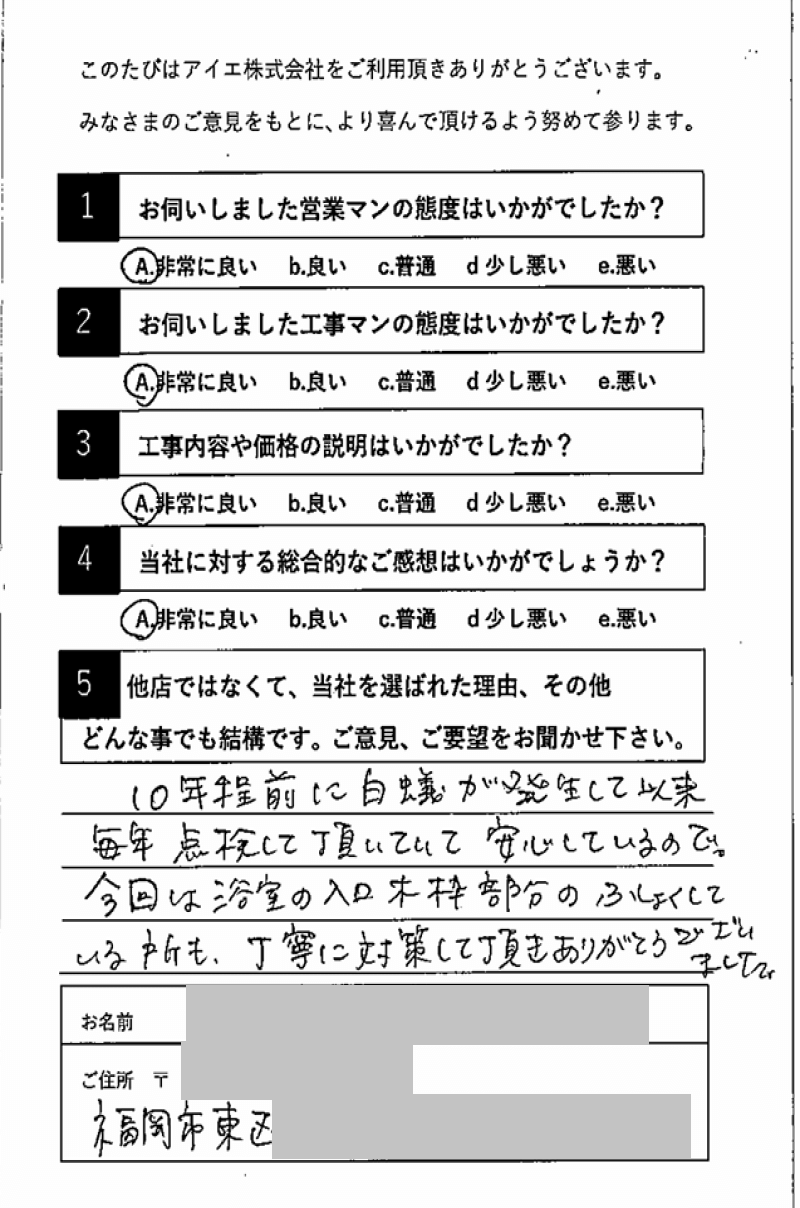 このたびはアイエ株式会社をご利用頂きありがとうございます。
みなさまのご意見をもとに、より喜んで頂けるよう努めて参ります。
1 お伺いしました営業マンの態度はいかがでしたか？
A.非常に良い b.良い c.普通 d 少し悪い e.悪い
2 お伺いしました工事マンの態度はいかがでしたか？
A.非常に良い b.良い c.普通 d 少し悪い e.悪い
3 工事内容や価格の説明はいかがでしたか？
A.非常に良い b.良い c.普通 d 少し悪い e.悪い
4 当社に対する総合的なご感想はいかがでしょうか？
A.非常に良い b.良い c.普通 d 少し悪い e.悪い
5 他店ではなくて、当社を選ばれた理由、その他
どんな事でも結構です。ご意見、ご要望をお聞かせ下さい。
10年程前に白蟻が発生して以来
毎年点検して頂いていて安心しているので。
今回は浴室の入口木枠部分のふしょくして
いる所も、丁寧に対策して頂きありがとうござい
ました。
お名前
ご住所 〒
福岡市東区